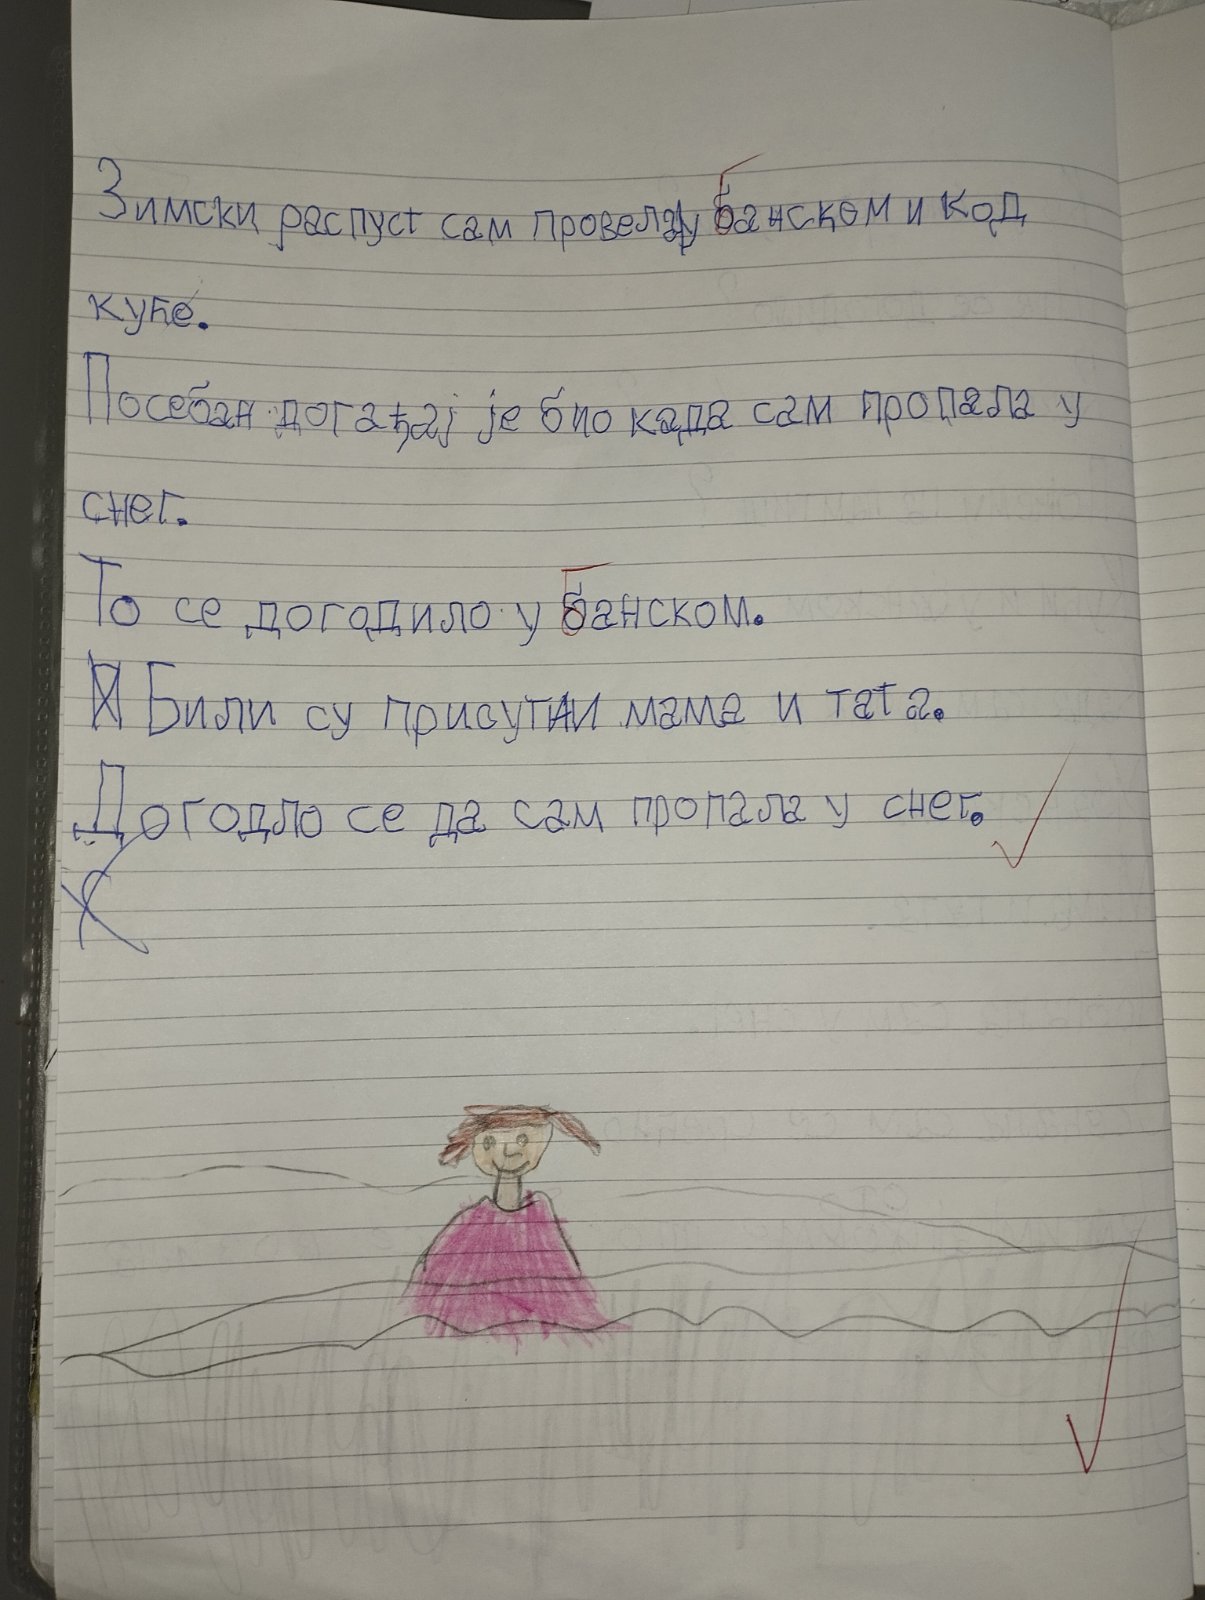 Зимски распуст сам провела у Банском и код
куће.
Посебан догађај је био када сам пропала у
снег.
То се догодило у Банском.
Били су присутни мама и тата.
Догодло се да сам пропала у снег.